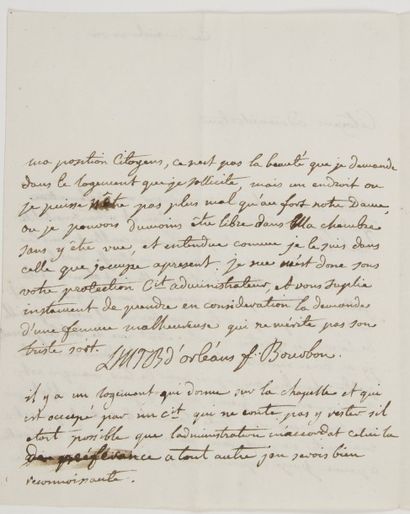 ma position Citoyens, ce nest pas la beauté que je demande
dans le logement que je sollicite, mais un endroit ou
je puisse nêtre pas plus mal qu'au fort notre Dame,
ou je pouvois dumoins être libre dans ma chambre
sans y être vue, et entendue comme je le suis dans
celle que j'occupe apresent. je me mest donc sous
votre protection Cit administrateur, et vous suplie
instament de prendre en considération la demande
d'une femme malheureuse qui ne mérite pas son
triste sort. LMTB d'orléans f. Bourbon.
il y a un logement qui donne sur la chapelle et qui
est occupé par un cit qui ne conte pas y rester sil
etoit possible que l'administration m'accordat celui la
de preference a tout autre j'en serois bien
reconnoissante.